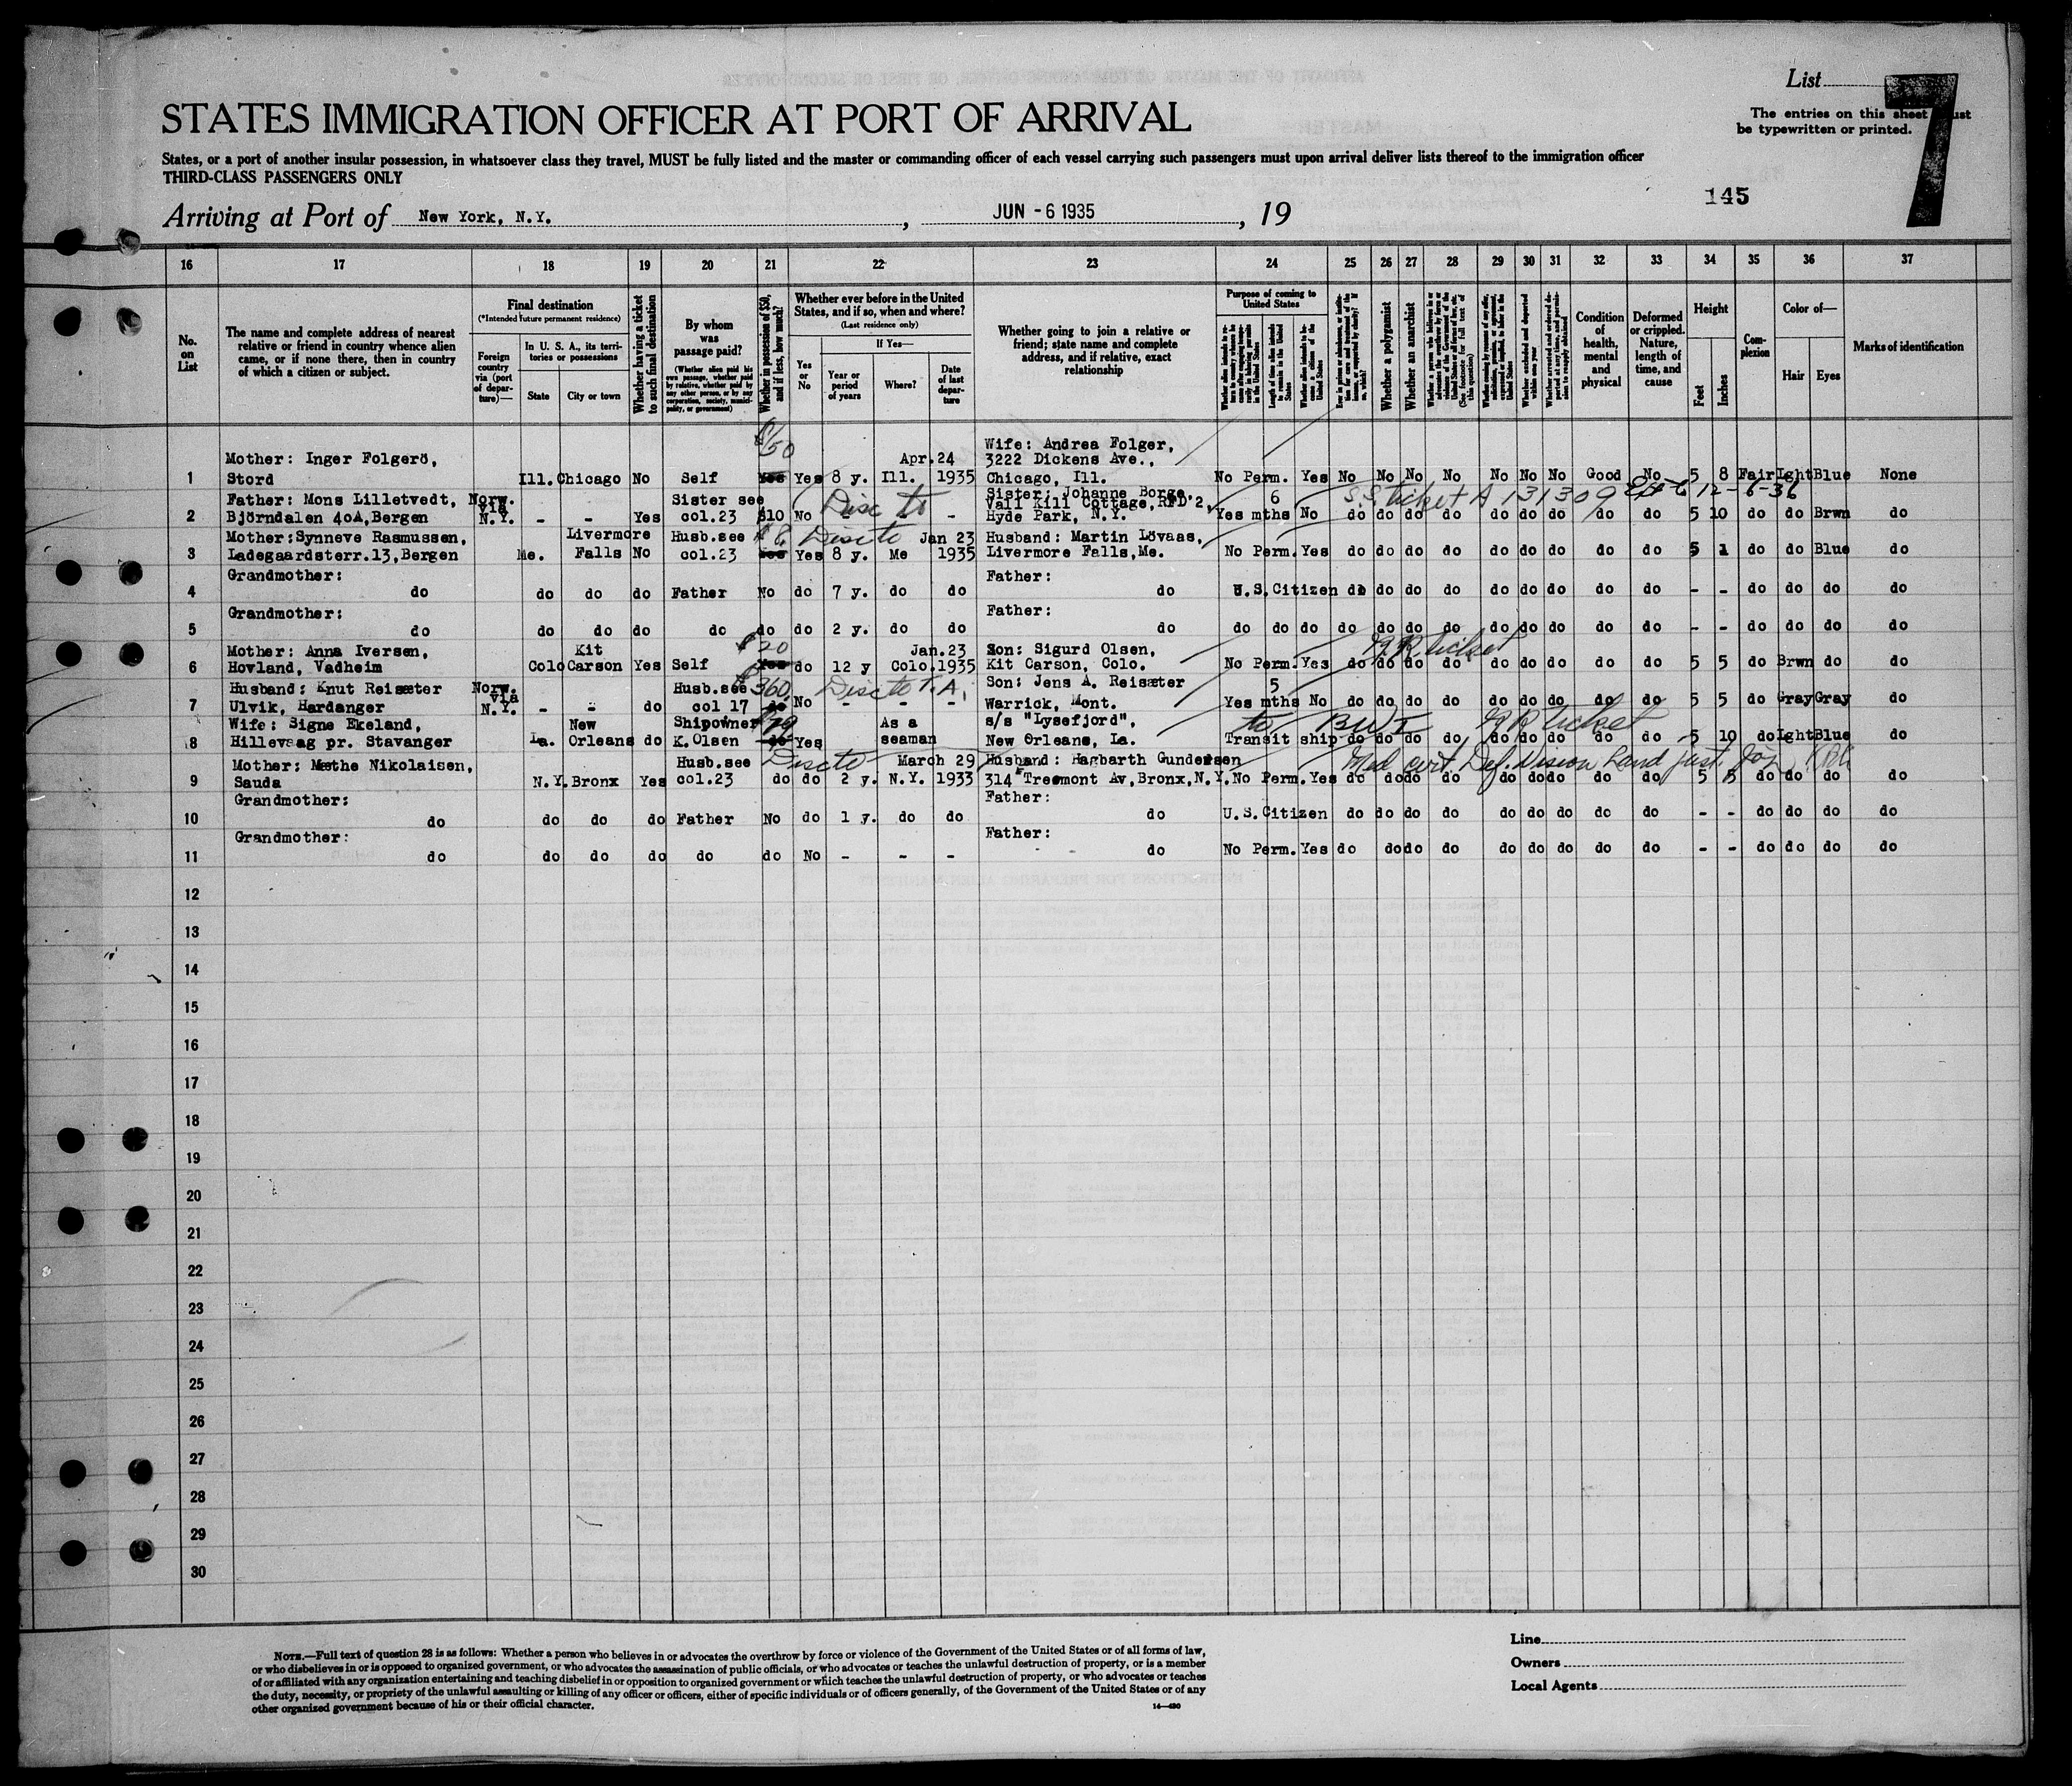 List 7
The entries on this sheet must
be typewritten or printed.
STATES IMMIGRATION OFFICER AT PORT OF ARRIVAL
States, or a port of another insular possession, in whatsoever class they travel, MUST be fully listed and the master or commanding officer of each vessel carrying such passengers must upon arrival deliver lists thereof to the immigration officer
THIRD-CLASS PASSENGERS ONLY
145
Arriving at Port of New York, N.Y., JUN -6 1935, 19
16 17 18 19 20 21 22 23 24 25 26 27 28 29 30 31 32 33 34 35 36 37
No. on List
The name and complete address of nearest relative or friend in country whence alien came, or if none there, then in country of which a citizen or subject.
Final destination
(*Intended future permanent residence)
Foreign country via (port of departure)—
In U. S. A., its territories or possessions
State
City or town
Whether having a ticket to such final destination
By whom was passage paid?
(Whether alien paid his own passage, whether paid by relative, whether paid by any other person, or by any corporation, society, municipality, or government)
Whether in possession of $50, and if less, how much?
Whether ever before in the United States, and if so, when and where?
(Last residence only)
Yes or No
If Yes—
Year or period of years
Where?
Date of last departure
Whether going to join a relative or friend; state name and complete address, and if relative, exact relationship
Purpose of coming to United States
Length of time alien intends to remain in the United States
Whether alien intends to become a citizen of the United States
Whether a polygamist
Whether an anarchist
(See footnote for full text of this question)
Condition of health, mental and physical
Deformed or crippled. Nature, length of time, and cause
Height
Feet
Inches
Complexion
Color of—
Hair
Eyes
Marks of identification
$150
Wife: Andrea Folger,
Mother: Inger Folgerö, Apr.24 3222 Dickens Ave.,
1 Stord Ill. Chicago No Self Yes Yes 8 y. Ill. 1935 Chicago, Ill. No Perm. Yes No No No No No No No Good No 5 8 Fair Lght Blue None
Father: Mons Lilletvedt, Norw. via Sister see Disc to Sister: Johanne Borge, Vall Kill Cottage, RFD 2, 6 S.S. ticket A 131309 12-6-36
2 Björndalen 40A, Bergen N.Y. - - Yes col.23 $10 No - - - Hyde Park, N.Y. Yes mths No do do do do do do do do do 5 10 do do Brwn do
Mother: Synneve Rasmussen, Livermore Husb.see Disc to Jan 23 Husband: Martin Lövaas,
3 Ladegaardsterr.13, Bergen Me. Falls No col.23 Yes Yes 8 y. Me 1935 Livermore Falls, Me. No Perm. Yes do do do do do do do do do 5 1 do do Blue do
Grandmother: Father:
4 do do do do Father No do 7 y. do do do U.S. Citizen do do do do do do do do do - - do do do do
Grandmother: Father:
5 do do do do do do do 2 y. do do do do do do do do do do do do do do do - - do do do do
Mother: Anna Iversen, Kit $20 Jan.23 Son: Sigurd Olsen, RR ticket
6 Hovland, Vadheim Colo Carson Yes Self Yes do 12 y Colo. 1935 Kit Carson, Colo. No Perm. Yes do do do do do do do do do 5 5 do Brwn do do
Husband: Knut Reisæter Norw. via Husb.see $360 Disc to T.A. Son: Jens A. Reisæter 5
7 Ulvik, Hardanger N.Y. - - do col 17 No - - - Warrick, Mont. Yes mths No do do do do do do do do do 5 5 do Gray Gray do
Wife: Signe Ekeland, New Shipowner As a s/s "Lysefjord", RR ticket
8 Hillevaag pr. Stavanger La. Orleans do K.Olsen do Yes seaman New Orleans, La. Transit ship do do do do do do do do do 5 10 do Lght Blue do
Mother: Mæthe Nikolaisen, Husb.see Disc to March 29 Husband: Hagbarth Gundersen Med cert Def. Vision
9 Sauda N.Y. Bronx Yes col.23 do do 2 y. N.Y. 1933 314 Treemont Av, Bronx, N.Y. No Perm. Yes do do do do do do do do do 5 5 do do do do
Grandmother: Father:
10 do do do do Father No do 1 y. do do do U.S. Citizen do do do do do do do do do - - do do do do
Grandmother: Father:
11 do do do do do do No - - - do No Perm. Yes do do do do do do do do do - - do do do do
12
13
14
15
16
17
18
19
20
21
22
23
24
25
26
27
28
29
30
NOTE.—Full text of question 28 is as follows: Whether a person who believes in or advocates the overthrow by force or violence of the Government of the United States or of all forms of law,
or who disbelieves in or is opposed to organized government, or who advocates the assassination of public officials, or who advocates or teaches the unlawful destruction of property, or is a member
of or affiliated with any organization entertaining and teaching disbelief in or opposition to organized government or which teaches the unlawful destruction of property, or who advocates or teaches
the duty, necessity, or propriety of the unlawful assaulting or killing of any officer or officers, either of specific individuals or of officers generally, of the Government of the United States or of any
other organized government because of his or their official character.
14—430
Line
Owners
Local Agents